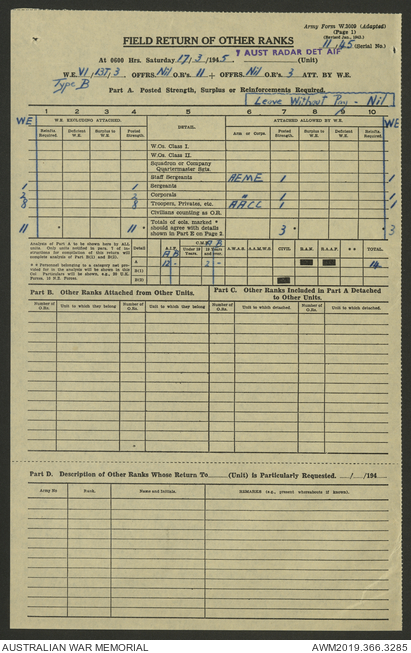 Army Form W.3009 (Adapted)
(Page 1)
(Revised Jan., 1942.)
11/45 (Serial No.)
FIELD RETURN OF OTHER RANKS
7 AUST RADAR DET AIF
At 0600 Hrs. Saturday 17/3/1945. (Unit)
W.E. VI/137/3 OFFRS. Nil O.R's. 11 + OFFRS. Nil O.R's. 3 ATT. BY W.E.
Type B
Part A. Posted Strength, Surplus or Reinforcements Required.
Leave Without Pay - Nil
1 2 3 4 5 6 7 8 9 10
WE W.E. EXCLUDING ATTACHED. DETAIL. ATTACHED ALLOWED BY W.E. WE
Reinfts. Required. Deficient W.E. Surplus to W.E. Posted Strength. Arm or Corps. Posted Strength. Surplus to W.E. Deficient W.E. Reinfts. Required.
W.Os. Class I.
W.Os. Class II.
Squadron or Company Quartermaster Sgts.
Staff Sergeants AEME 1 1
1 Sergeants 1
2 Corporals 2 " 1 1
8 Troopers, Privates, etc. 8 AACC 1 1
Civilians counting as O.R.
11 * 11 * Totals of cols. marked * should agree with details shown in Part E on Page 2. 3 * * 3
Analysis of Part A to be shown here by ALL units.
Detail A.I.F. C.M.F. A.W.A.S. A.A.M.W.S. CIVIL R.A.N. R.A.A.F. ** TOTAL.
Under 18 Years.
A B
A 12 - 2 - 14
B(1)
B(2)
Part B. Other Ranks Attached from Other Units. Part C. Other Ranks Included in Part A Detached to Other Units.
Number of O.Rs. Unit to which they belong Number of O.Rs. Unit to which they belong Number of O.Rs. Unit to which detached. Number of O.Rs. Unit to which detached.
Part D. Description of Other Ranks Whose Return To (Unit) is Particularly Requested. / /194
Army No Rank. Name and Initials. REMARKS (e.g., present whereabouts if known).
AUSTRALIAN WAR MEMORIAL AWM2019.366.3285